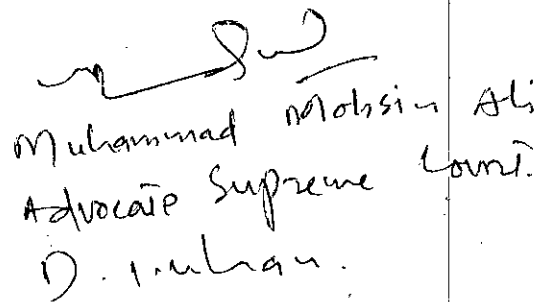 Muhammad Mohsin Ali
Advocate Supreme Court.
D.I.Khan.